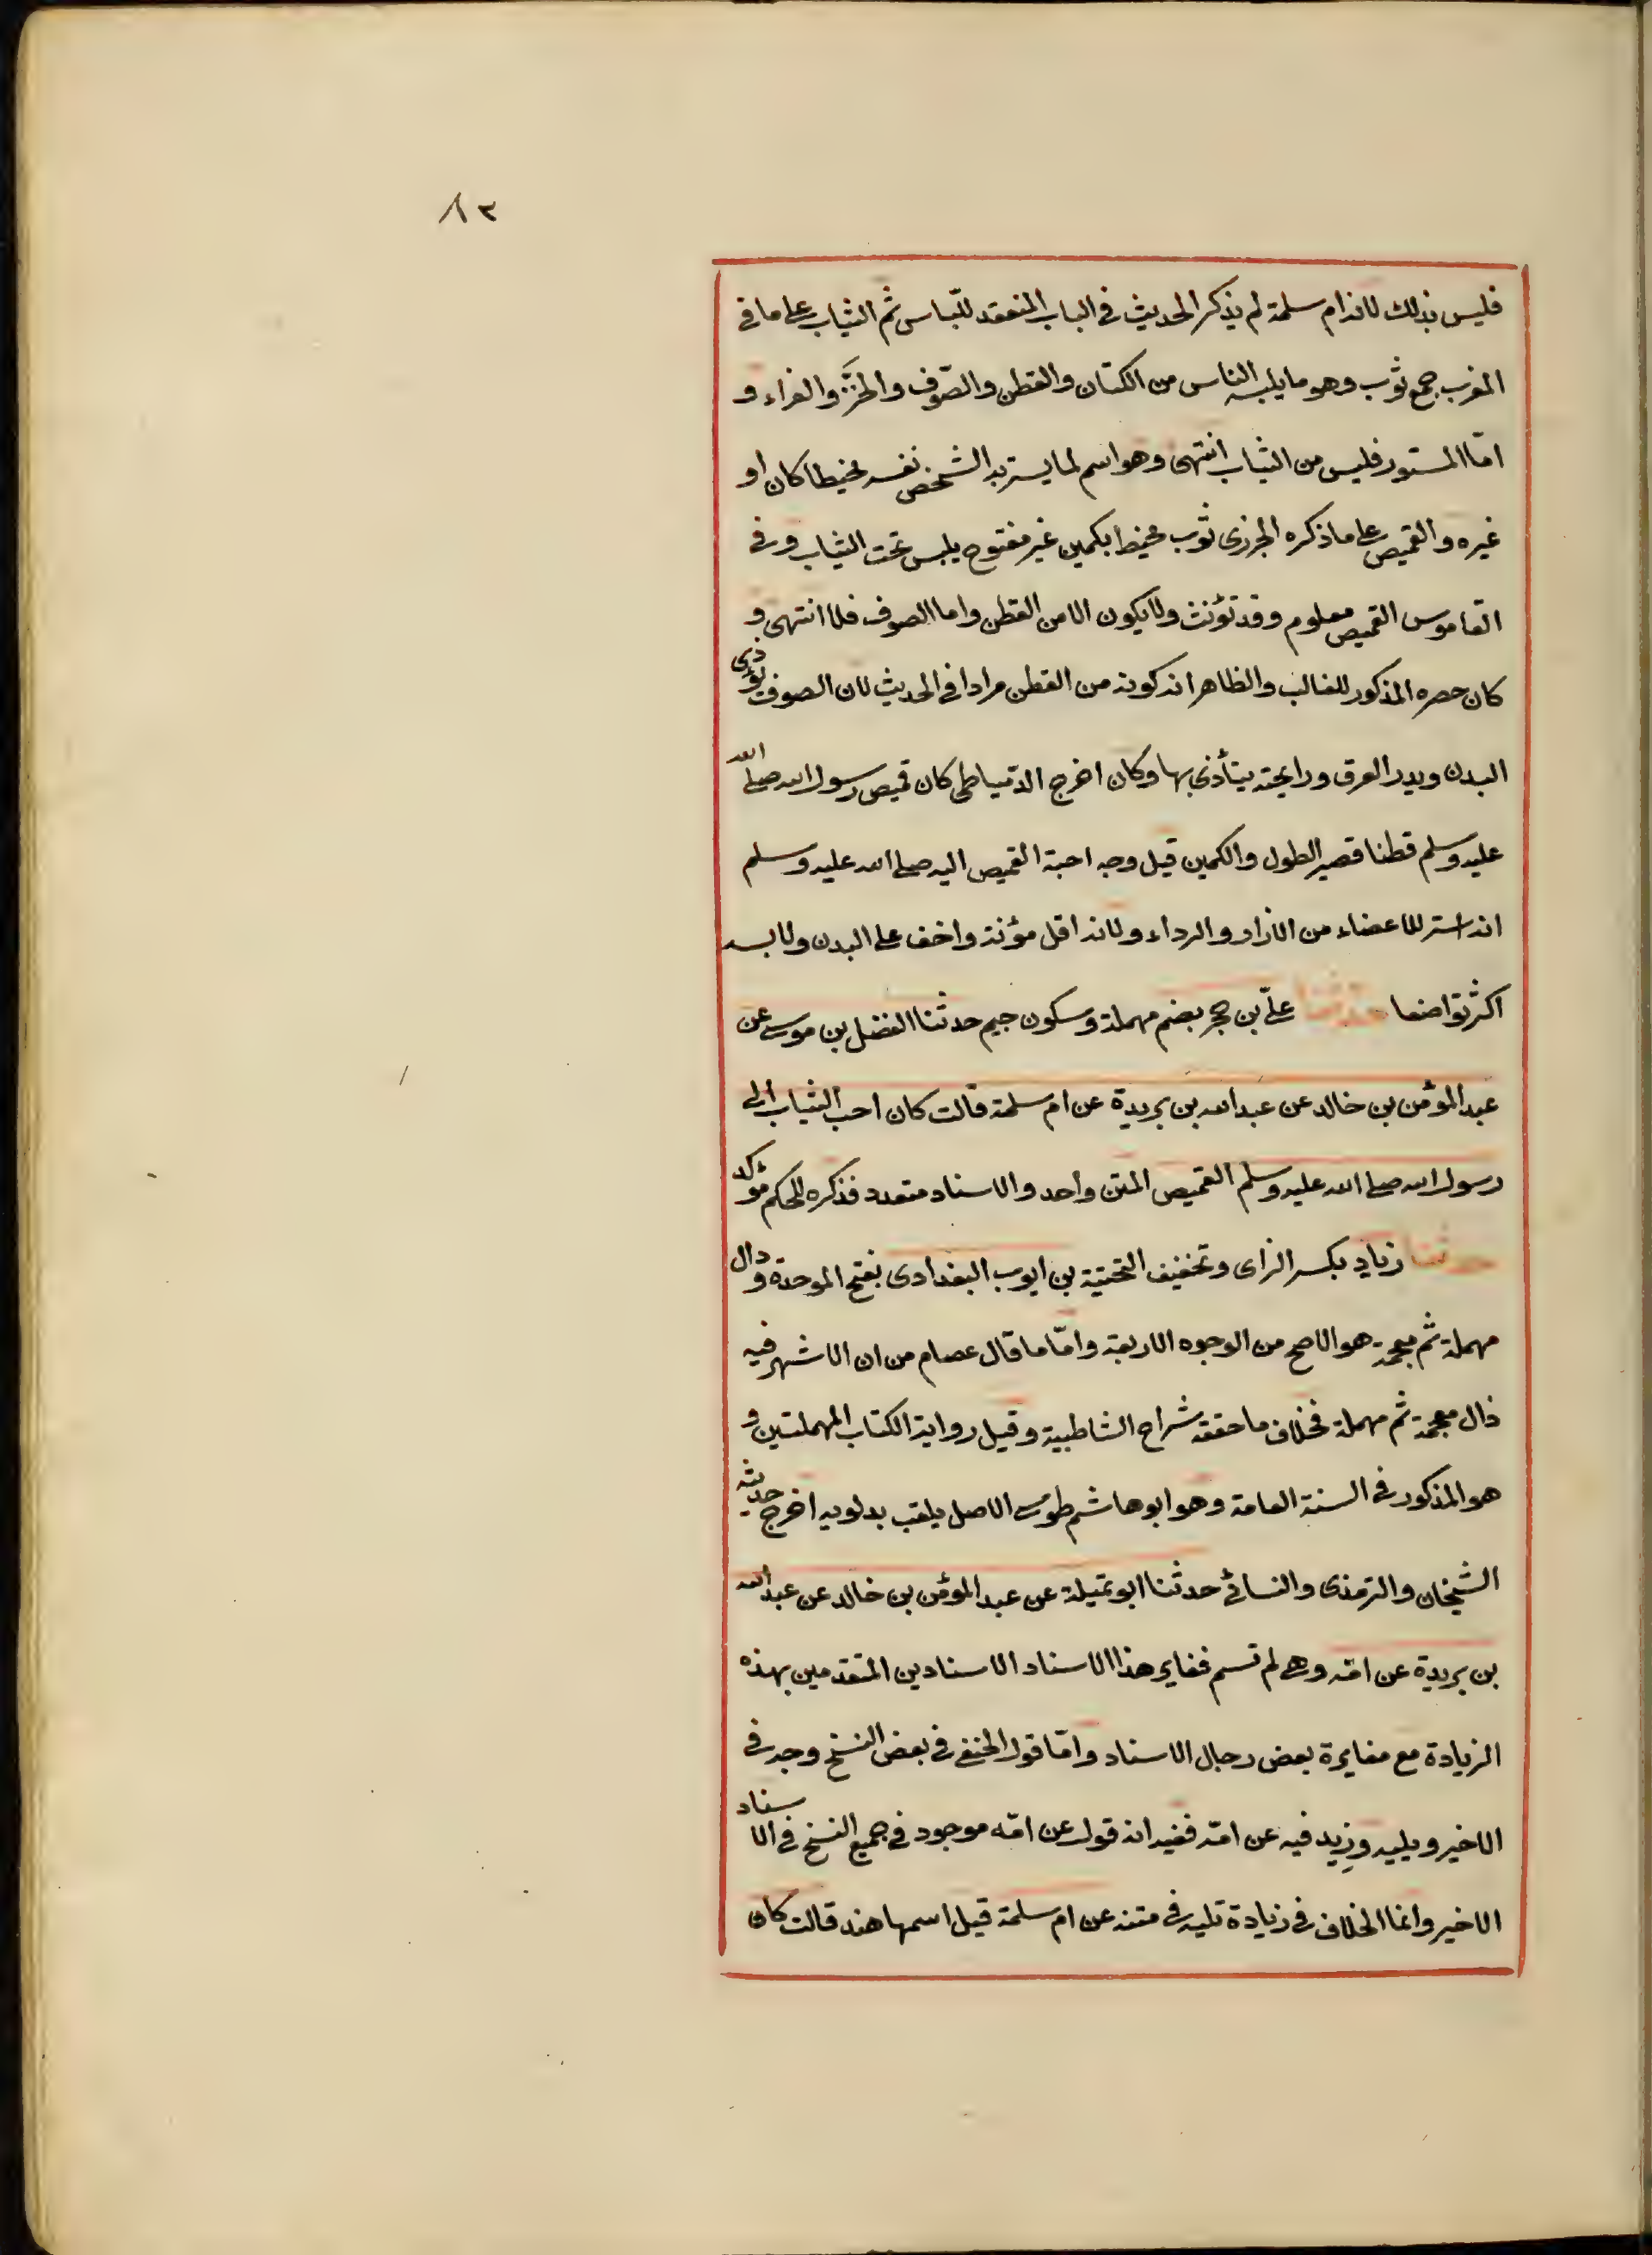 ٨٢
فليس بذلك لانه ام سلمة لم يذكر الحديث في الباب المنعقد للباس ثم الثياب على ما في
المغرب جمع ثوب وهو ما يلبسه الناس من الكتان والقطن والصّوف والخزّ والفراء و
امّا الستور فليس من الثياب انتهى وهو اسم لما يستر به الشخص نفسه مخيطا كان او
غيره والقميص على ما ذكره الجزرى ثوب مخيط بكمين غير مفتوح يلبس تحت الثياب وفي
القاموس القميص معلوم وقد تؤنث ولا يكون الا من القطن واما الصوف فلا انتهى و
كان حصره المذكور للغالب والظاهر انه كونه من القطن مرادا في الحديث لان الصوف يؤذى
البدن ويدر العرق ورايحته يتأذى بها وكان اخرج الدّمياطى كان قميص رسول الله صلى الله
عليه وسلم قطنا قصير الطول والكمين قيل وجه احبة القميص اليه صلى الله عليه وسلم
انه استر للاعضاء من الازار والرداء ولانه اقل مؤنة واخف على البدن ولابسه
اكثر تواضعا حدثنا علىّ بن حجر بضم مهملة وسكون جيم حدثنا الفضل بن موسى عن
عبد المؤمن بن خالد عن عبد الله بن بريدة عن ام سلمة قالت كان احب الثياب الى
رسول الله صلى الله عليه وسلم القميص المتن واحد والاسناد متعدد فذكره للحكم مؤكد
حدثنا زياد بكسر الزاى وتخفيف التحتية بن ايوب البغدادى بفتح الموحدة ودال
مهملة ثم معجمة هو الاصح من الوجوه الاربعة وامّا ما قال عصام من ان الاشهر فيه
ذال معجمة ثم مهملة فخلاف ما حققه شراح الشاطبية وقيل رواية الكتاب المهملتين و
هو المذكور في السنة العامة وهو ابو هاشم طوسى الاصل يلقب بدلويه اخرج حديثه
الشيخان والترمذى والنسائى حدثنا ابو تميلة عن عبد المؤمن بن خالد عن عبد الله
بن بريدة عن امّه وهى لم تسم فغاير هذا الاسناد الاسنادين المتقدمين بهذه
الزيادة مع مغايرة بعض رجال الاسناد وامّا قول الحنفى في بعض النسخ وجد في
الاخير ويليه وزيد فيه عن امّه ففيه انه قوله عن امّه موجود في جميع النسخ في الاسناد
الاخير وانما الخلاف في زيادة تليه في متنه عن ام سلمة قيل اسمها هند قالت كان